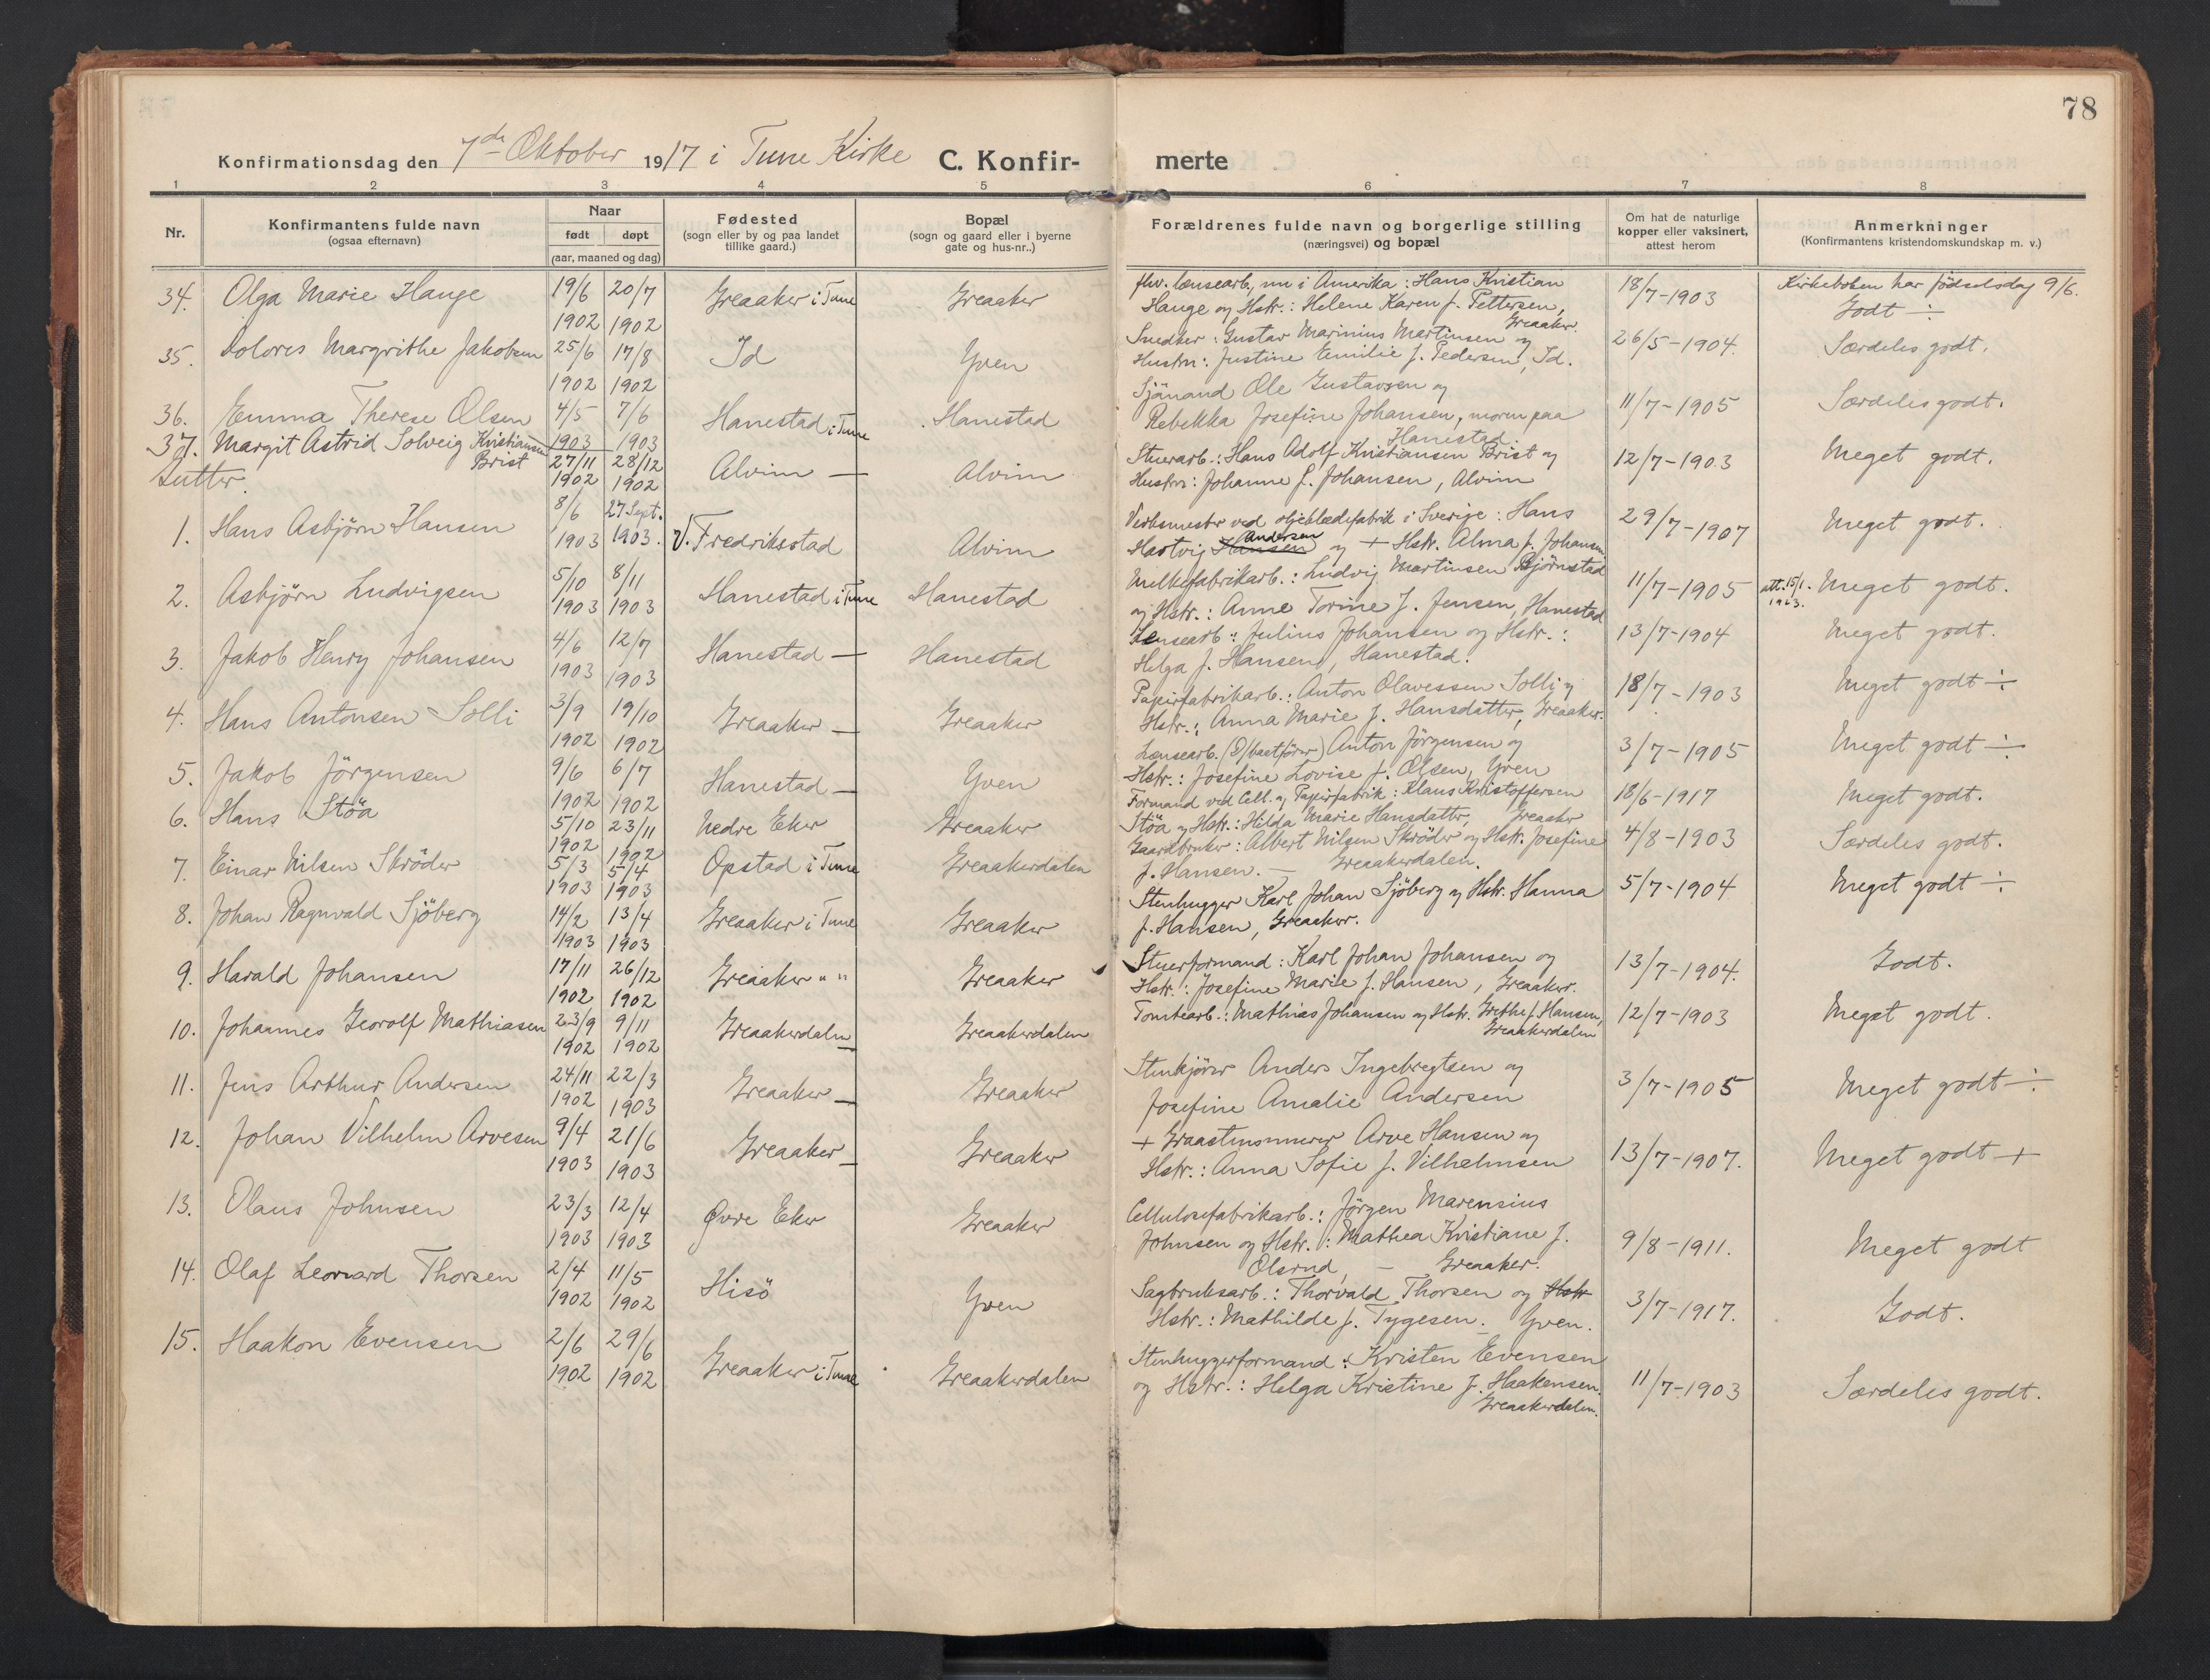 78
Konfirmationsdag den 7de Oktober 1917 i Tune Kirke C. Konfir- merte
1 2 3 4 5 6 7 8
Nr.
Konfirmantens fulde navn
(ogsaa efternavn)
Naar
født døpt
(aar, maaned og dag)
Fødested
(sogn eller by og paa landet
tillike gaard.)
Bopæl
(sogn og gaard eller i byerne
gate og hus-nr..)
Forældrenes fulde navn og borgerlige stilling
(næringsvei) og bopæl
Om hat de naturlige
kopper eller vaksinert,
attest herom
Anmerkninger
(Konfirmantens kristendomskundskap m. v.)
34. Olga Marie Hauge 19/6 1902 20/7 1902 Greaaker i Tune Greaaker
fhv. lensearb., nu i Amerika: Hans Kristian
Hauge og Hstr.: Helene Karen f. Pettersen,
Greaaker.
18/7-1903
Kirkeboken har fødselsdag 9/6.
Godt ÷
35. Dolores Margrithe Jakobsen 25/6 1902 17/8 1902 Id Yven
Snedker: Gustav Marinius Martinsen og
Hustru: Justine Emilie f. Pedersen, Id.
26/5-1904. Særdeles godt.
36. Emma Therese Olsen 4/5 1903 7/6 1903 Hanestad i Tune Hanestad
Sjömand Ole Gustavsen og
Rebekka Josefine Johansen, moren paa
Hanestad
11/7-1905 Særdeles godt.
37. Margit Astrid Solveig Kristiansen
Brist 27/11 1902 28/12 1902 Alvim — Alvim
Stuerarb.: Hans Adolf Kristiansen Brist og
Hustru: Johanne f. Johansen, Alvim
12/7-1903 Meget godt.
Gutter.
1. Hans Asbjörn Hansen 8/6 1903 27 Sept. 1903. V. Fredriksstad Alvim
Verksmester ved oljeklædefabrik i Sverige: Hans
Hartvig Hansen Andersen og + Hstr. Alma f. Johansen.
29/7-1907 Meget godt.
2. Asbjörn Ludvigsen 5/10 1903 8/11 1903 Hanestad i Tune Hanestad
Melkefabrikarb.: Ludvig Martinsen Bjørnstad
og Hstr.: Anne Torine f. Jensen, Hanestad
11/7-1905 att. 15/1. Meget godt.
3. Jakob Henry Johansen 4/6 1903 12/7 1903 Hanestad — Hanestad
Lensearb.: Julius Johansen og Hstr.:
Helga f. Hansen, Hanestad.
13/7-1904 Meget godt.
4. Hans Antonsen Solli 3/9 1902 19/10 1902 Greaaker — Greaaker
Papirfabrikarb.: Anton Olavessen Solli og
Hstr.: Anna Marie f. Hansdatter, Greaaker.
18/7-1903 Meget godt ÷
5. Jakob Jörgensen 9/6 1902 6/7 1902 Hanestad — Yven
Lensearb. Anton Jörgensen og
Hstr.: Josefine Lovise f. Olsen, Yven
3/7-1905 Meget godt ÷
6. Hans Stöa 5/10 1902 23/11 1902 Nedre Eker Greaaker
Formand ved Cell. og Papirfabrik: Klaus Kristoffersen
Stöa og Hstr.: Hilda Marie Hansdatter, Greaaker
18/6-1917 Meget godt.
7. Einar Nilsen Skröder 5/3 1903 5/4 1903 Opstad i Tune Greaakerdalen
Gaardbruker: Albert Nilsen Skröder og Hstr. Josefine
f. Hansen. — Greaakerdalen.
4/8-1903 Særdeles godt.
8. Johan Ragnvald Sjöberg 14/2 1903 13/4 1903 Greaaker i Tune Greaaker
Stenhugger Karl Johan Sjöberg og Hstr. Hanna
f. Hansen, Greaaker.
5/7-1904 Meget godt ÷
9. Harald Johansen 17/11 1902 26/12 1902 Greaaker " " Greaaker
Stuerformand: Karl Johan Johansen og
Hstr.: Josefine Marie f. Hansen, Greaaker.
13/7-1904. Godt.
10. Johannes Georolf Mathiasen 23/9 1902 9/11 1902 Greaakerdalen — Greaakerdalen
Tomtearb.: Mathias Johansen og Hstr. Grethe f. Hansen,
Greaakerdalen
12/7-1903 Meget godt.
11. Jens Arthur Andersen 24/11 1902 22/3 1903 Greaaker — Greaaker
Stenkjörer Anders Ingebregtsen og
Josefine Amalie Andersen
3/7-1905 Meget godt ÷
12. Johan Vilhelm Arvesen 9/4 1903 21/6 1903 Greaaker — Greaaker
+ Graastensmurer Arve Hansen og
Hstr.: Anna Sofie f. Vilhelmsen
13/7-1907. Meget godt +
13. Olaus Johnsen 23/3 1903 12/4 1903 Øvre Eker Greaaker
Cellulosefabrikarb.: Jörgen Marensius
Johnsen og Hstr.: Mathea Kristiane f.
Olsrud, — Greaaker.
9/8-1911. Meget godt
14. Olaf Leonard Thorsen 2/4 1902 11/5 1902 Hisö Yven
Sagbruksarb.: Thorvald Thorsen og Hstr
Hstr.: Mathilde f. Tygesen. Yven.
3/7-1917. Godt.
15. Haakon Evensen 2/6 1902 29/6 1902 Greaaker i Tune Greaakerdalen
Stenhuggerformand: Kristen Evensen
og Hstr.: Helga Kristine f. Haakensen.
Greaakerdalen.
11/7-1903 Særdeles godt.